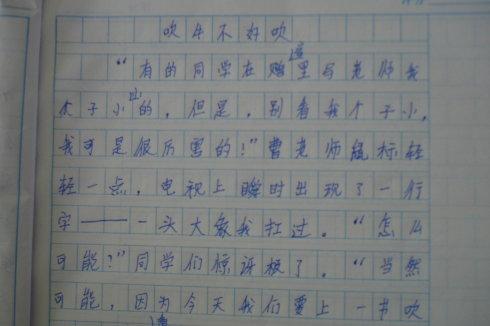 吹牛不好吹
“有的同学在里写老师我
个子小小的，但是，别看我个子小，
我可是很厉害的！”曹老师鼠标轻
轻一点，电视上瞬时出现了一行
字——一头大象我扛过。“怎么
可能？”同学们惊讶极了。“当然
可能，因为今天我们要上一节吹